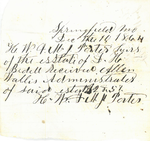 Springfield Mo
Dec the 10 1864
H. W. & M J Porter heirs
of the estate of L. H.
Bedell Received of Allen
Waller Administrator
of said estate
H. W. & M J Porter